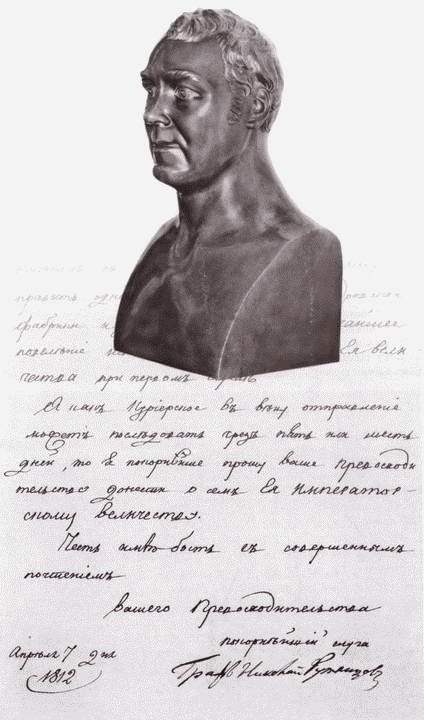 править одн
фабрик
повеленіе Ея вели-
чества при первом
А какъ Курьерское въ Вѣну отправленіе
можетъ последовать чрезъ пять или шесть
дней, то Я покорнейше прошу ваше превосходи
тельство донести о семъ Ея Император-
скому величеству.
Честь имѣю быть съ совершеннымъ
почтеніемъ
вашего Превосходительства
покорнѣйшій слуга
Апреля 7 дня
1812
Графъ Николай Румянцовъ